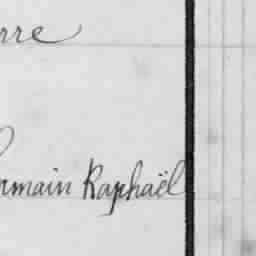 rre
rmain Raphaël